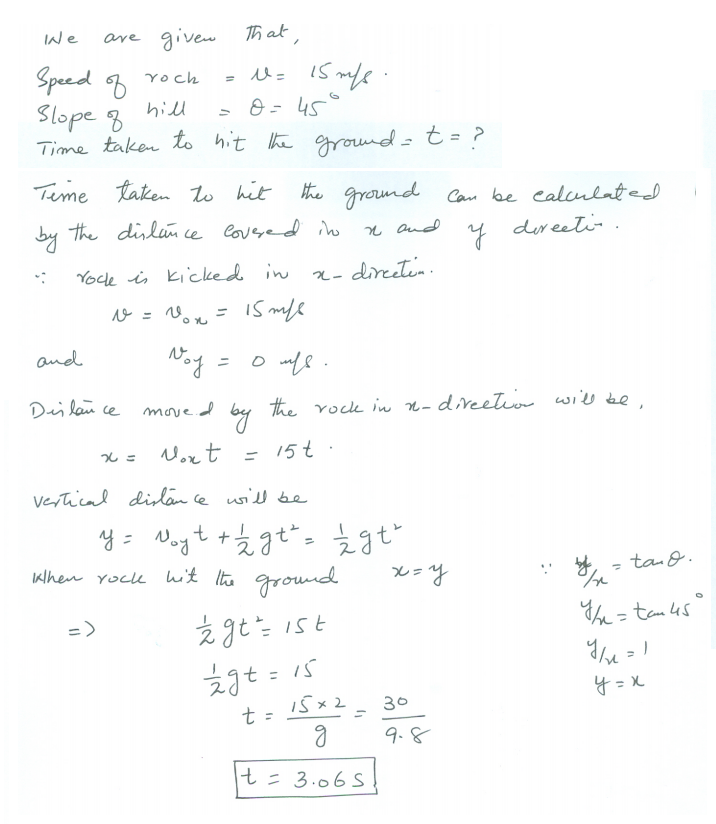 We are given that,
Speed of rock = v = 15 m/s.
Slope of hill = θ = 45°
Time taken to hit the ground = t = ?
Time taken to hit the ground can be calculated
by the distance covered in x and y direction.
∵ rock is kicked in x-direction.
v = v₀ₓ = 15 m/s
and v₀y = 0 m/s.
Distance moved by the rock in x-direction will be,
x = v₀ₓt = 15t.
vertical distance will be
y = v₀yt + ½gt² = ½gt²
When rock hit the ground x=y ∵ y/x = tanθ.
y/x = tan 45°
=> ½gt² = 15t
y/x = 1
½gt = 15
y = x
t = 15×2/g = 30/9.8
t = 3.06s